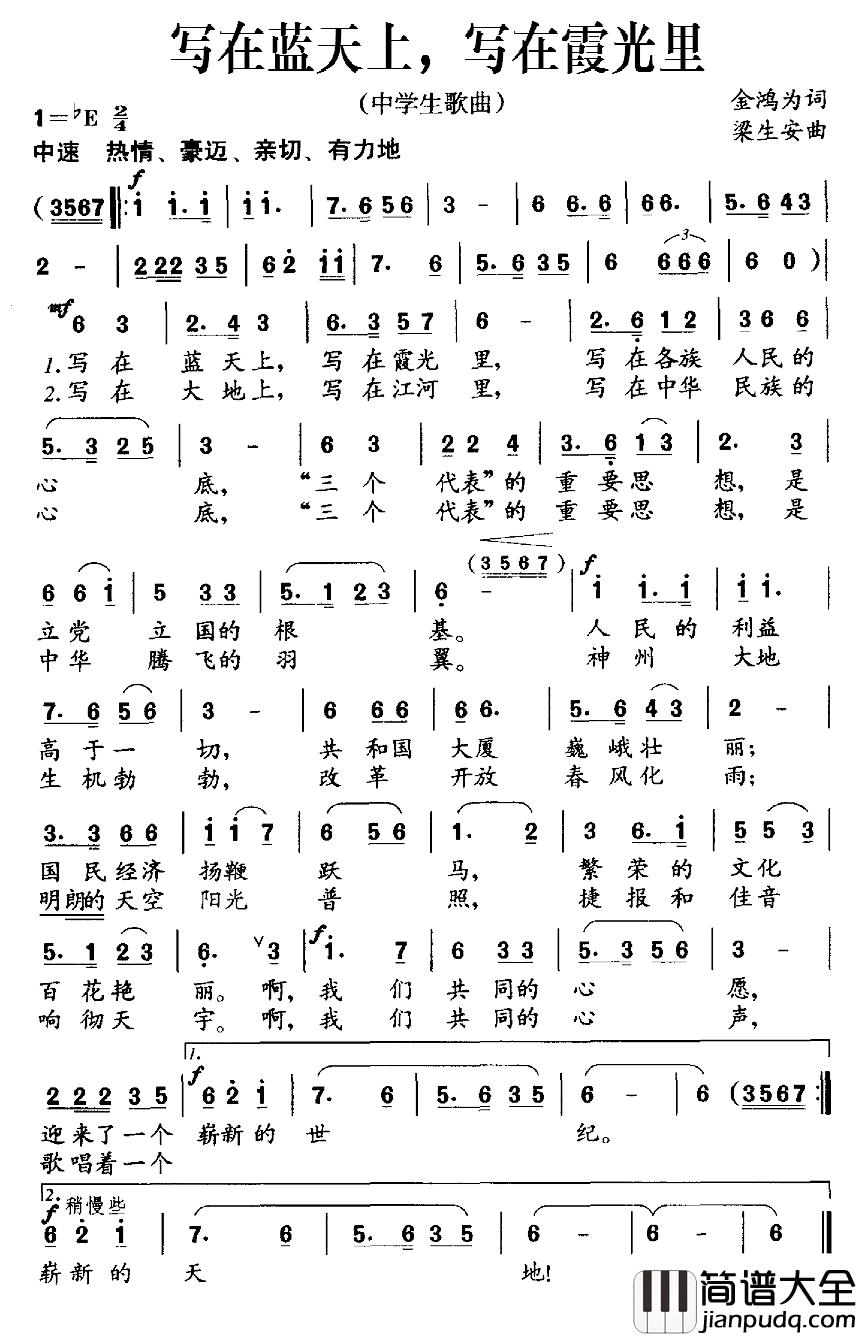 写在蓝天上，写在霞光里
（中学生歌曲）
金鸿为词
梁生安曲
1=♭E 2/4
中速 热情、豪迈、亲切、有力地
f
(3567 ‖: i i. i | i i. | 7. 6 5 6 | 3 - | 6 6. 6 | 6 6. | 5. 6 4 3 |
2 - | 2 2 2 3 5 | 6 2 i i | 7. 6 | 5. 6 3 5 | 6 6 6 6 | 6 0 )|
mf
6 3 | 2. 4 3 | 6. 3 5 7 | 6 - | 2. 6 1 2 | 3 6 6 |
1.写在 蓝天上， 写在霞光 里， 写在各族 人民的
2.写在 大地上， 写在江河 里， 写在中华 民族的
5. 3 2 5 | 3 - | 6 3 | 2 2 4 | 3. 6 1 3 | 2. 3 |
心 底， “三个 代表”的 重要思 想，是
心 底， “三个 代表”的 重要思 想，是
(3 5 6 7) f
6 6 i | 5 3 3 | 5. 1 2 3 | 6 - | i i. i | i i. |
立党 立国的 根 基。 人民的 利益
中华 腾飞的 羽 翼。 神州 大地
7. 6 5 6 | 3 - | 6 6 6 | 6 6. | 5. 6 4 3 | 2 - |
高于一 切， 共和国 大厦 巍峨壮 丽；
生机勃 勃， 改革 开放 春风化 雨；
3. 3 6 6 | i i 7 | 6 5 6 | 1. 2 | 3 6. i | 5 5 3 |
国民经济 扬鞭 跃 马， 繁荣的 文化
明朗的天空 阳光 普 照， 捷报和 佳音
5. 1 2 3 | 6. ∨ 3 | f i. 7 | 6 3 3 | 5. 3 5 6 | 3 - |
百花艳 丽。啊，我们 共同的 心 愿，
响彻天 宇。啊，我们 共同的 心 声，
1.
2 2 2 3 5 | f 6 2 i | 7. 6 | 5. 6 3 5 | 6 - | 6 (3567 :‖
迎来了一个 崭新的 世 纪。
歌唱着一个
2. 稍慢些
f
6 2 i | 7. 6 | 5. 6 3 5 | 6 - | 6 - | 6 - ‖
崭新的 天 地！
简谱大全
jianpudq.com